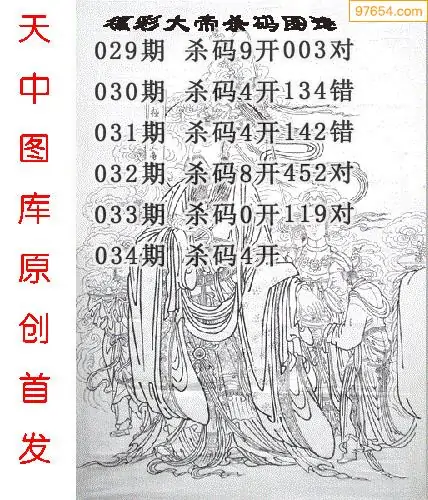 97654.com
福彩大帝杀码图谜
029期 杀码9开003对
030期 杀码4开134错
031期 杀码4开142错
032期 杀码8开452对
033期 杀码0开119对
034期 杀码4开
天中图库原创首发